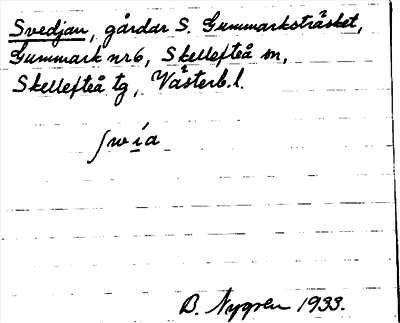 Svedjan, gårdar S. Gummarksträsket,
Gummark nr 6, Skellefteå sn,
Skellefteå tg, Västerb. l.
ʃwía
B. Nygren 1933.